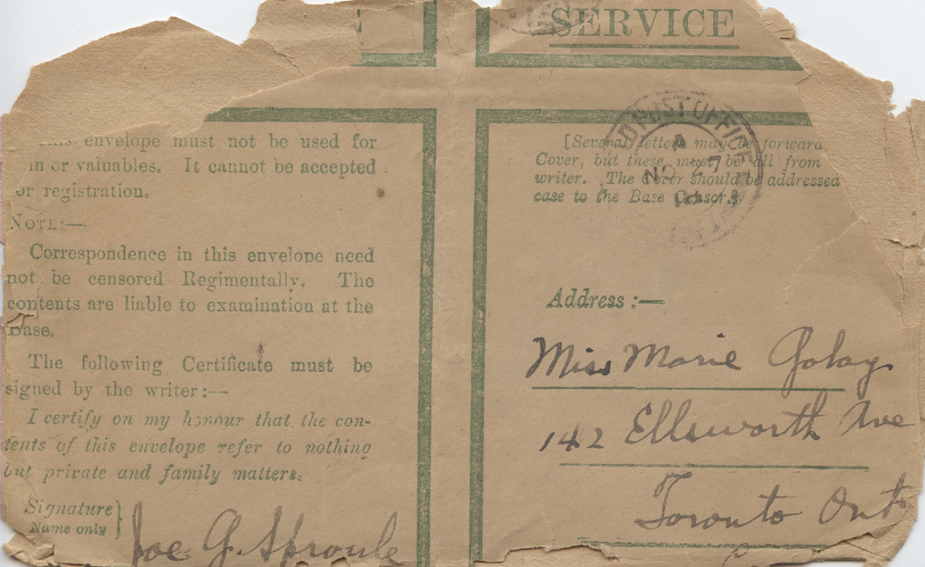 SERVICE
envelope must not be used for
or valuables. It cannot be accepted
or registration.
NOTE:—
Correspondence in this envelope need
not be censored Regimentally. The
contents are liable to examination at the
Base.
The following Certificate must be
signed by the writer:—
I certify on my honour that the con-
tents of this envelope refer to nothing
but private and family matters.
Signature }
Name only
Joe G. Sproule
POST OFFICE
A
NO 27
[Several letters may be forward
Cover, but these must be all from
writer. The Cover should be addressed
case to the Base Censor.]
Address:—
Miss Marie Golay
142 Ellsworth Ave
Toronto Ont